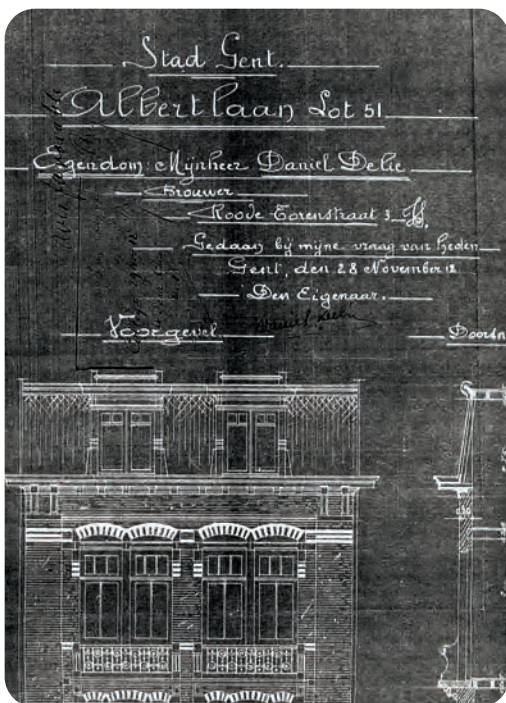 Stad Gent.
Albertlaan Lot 51
Eigendom: Mijnheer Daniel Delie
Brouwer
Roode Torenstraat 3
Gedaan bij mijne vraag van heden
Gent, den 28 November 12
Den Eigenaar.
Voorgevel.
Doorsn